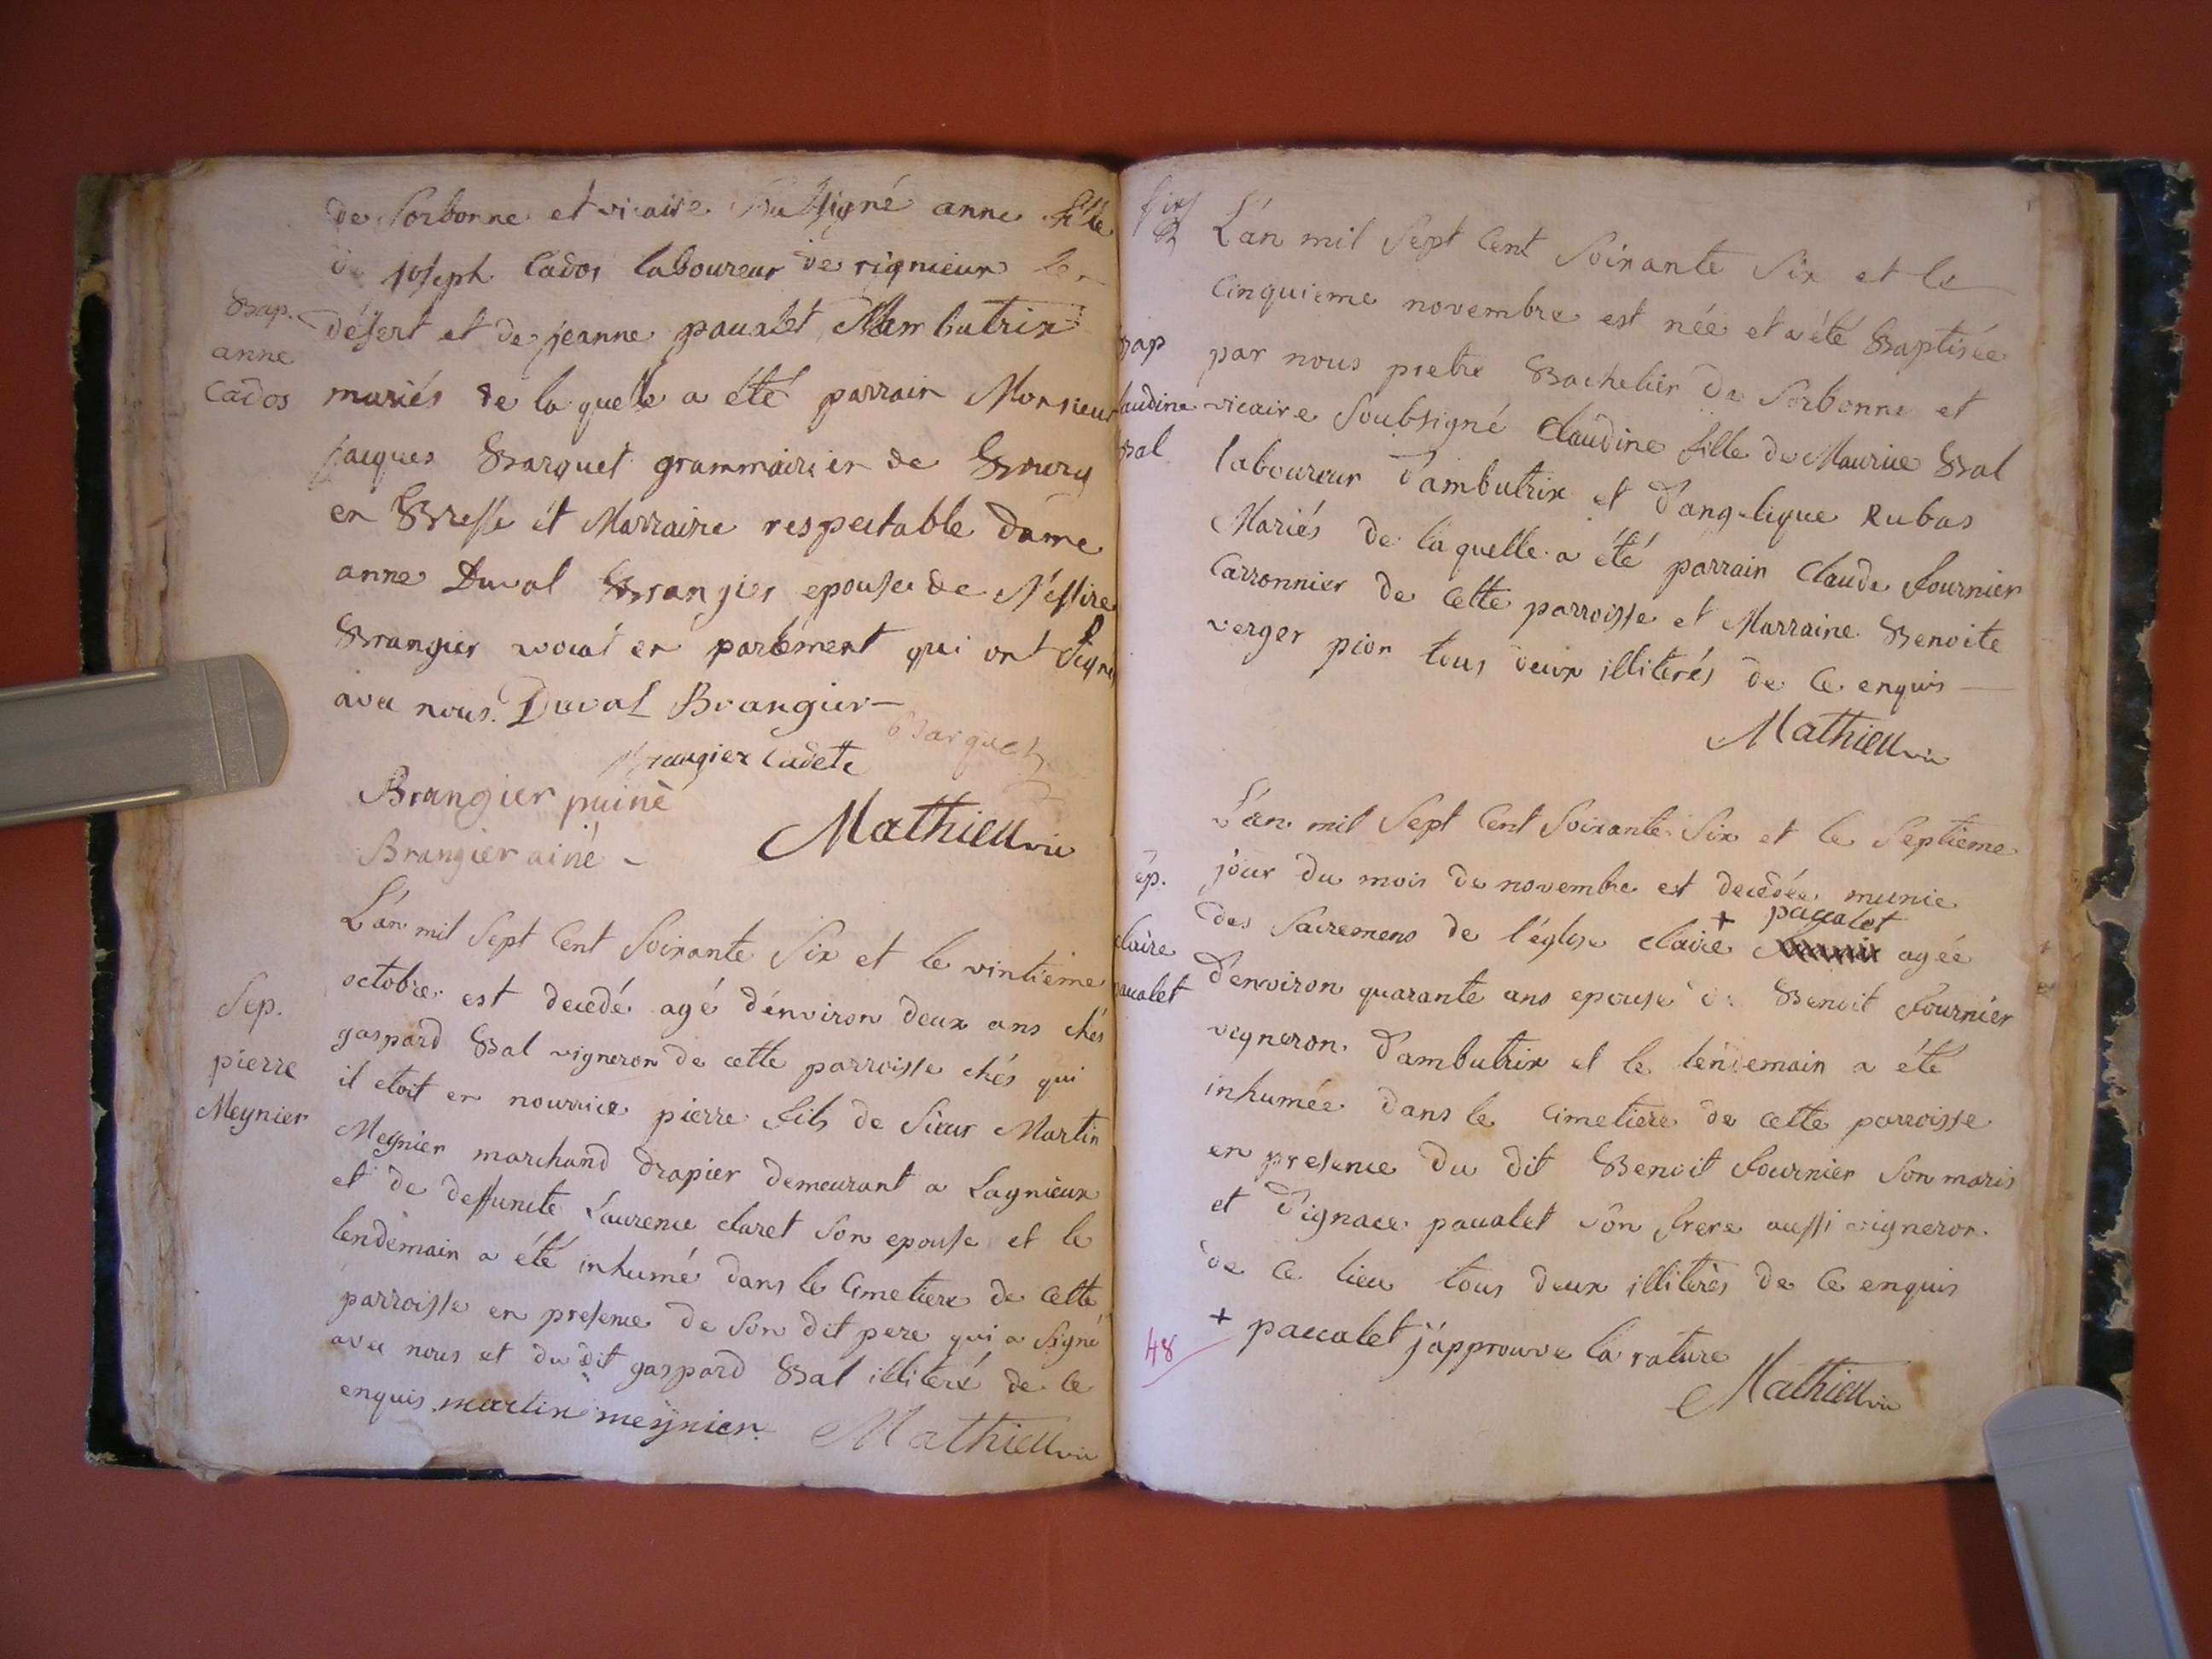 de Sorbonne et vicaire Subsigné anne fille
de joseph Cados laboureur de rignieux le
Bap. désert et de jeanne paualet d'Ambutrix
anne
Cados mariés de la quelle a été parrain Monsieur
jacques Barquet grammairien de Bourg
en Bresse et Marraine respectable dame
anne Duval Brangier epouse de Messire
Brangier avocat en parlement qui ont Signé
avec nous. Duval Brangier
Barquet
Brangier Cadete
Brangier puiné
Mathieu vic
Brangier ainé
L'an mil Sept Cent Soixante Six et le vintieme
octobre est decedé agé d'environ deux ans chés
Sep. gaspard Bal vigneron de cette parroisse chés qui
pierre il etoit en nourrice pierre fils de Sieur Martin
Meynier Meynier marchand drapier demeurant a Lagnieux
et de deffuncte Laurence claret Son epouse et le
lendemain a été inhumé dans le Cimetiere de Cette
parroisse en presence de Son dit pere qui a Signé
avec nous et du dit gaspard Bal illiteré de Ce
enquis. martin meÿnier. Mathieu vic
L'an mil Sept Cent Soixante Six et le
Cinquieme novembre est née et a été Baptisée
Bap par nous pretre Bachelier de Sorbonne et
laudine vicaire Soubsigné Claudine fille de Maurice Bal
Bal laboureur d'ambutrix et d'angelique Rubas
Mariés de la quelle a été parrain Claude Fournier
Carronnier de Cette parroisse et Marraine Benoite
verger pion tous deux illiterés de Ce enquis
Mathieu vic
L'an mil Sept Cent Soixante Six et le Septieme
ep. jour du mois de novembre est decedée munie
des Sacremens de l'église claire + paualet agée
claire
paualet d'environ quarante ans epouse de Benoit Fournier
vigneron d'ambutrix et le lendemain a été
inhumée dans le Cimetiere de cette parroisse
en presence du dit Benoit Fournier Son maris
et d'ignace paualet Son frere aussi vigneron
de Ce lieu tous deux illiterés de Ce enquis
+ paualet j'approuve la rature
48
Mathieu vic